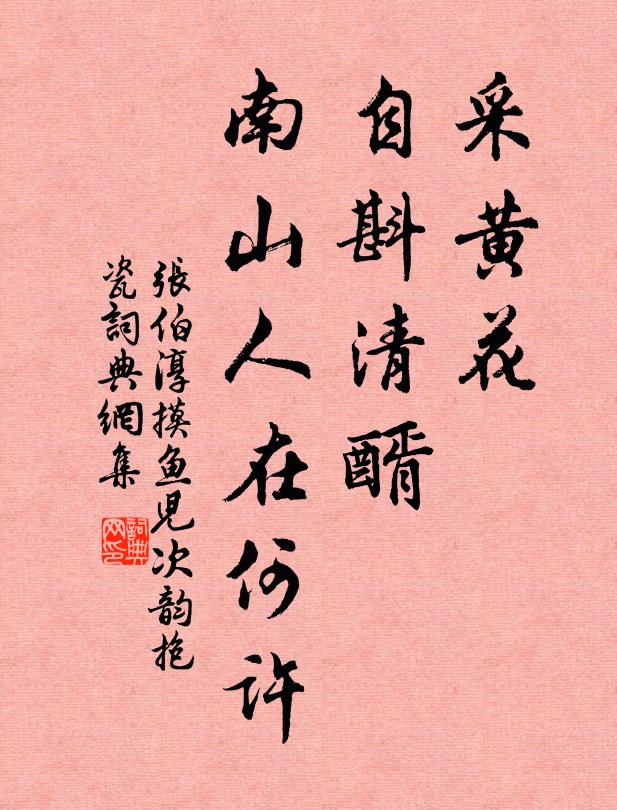 采黄花
自斟清醑
南山人在何许
張伯淳摸鱼児次韵抱
瓷詞典網集
詞典
网印